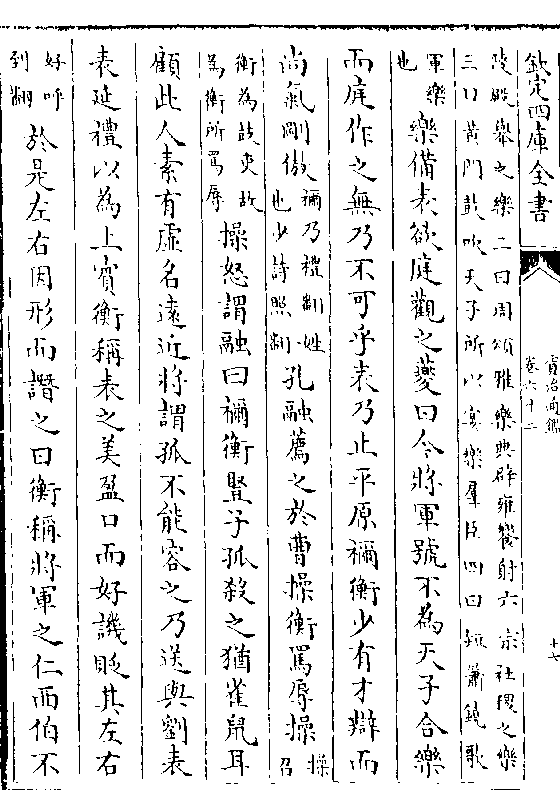 欽定四庫全書
資治通鑑
卷六十二
十七
陵殿舉之樂二曰周頌雅樂典辟雍饗射六宗社稷之樂
三曰黄門鼓吹天子所以宴樂羣臣四曰短簫鐃歌
軍樂
也
樂備表欲庭觀之夔曰今將軍號不為天子合樂
而庭作之無乃不可乎表乃止平原禰衡少有才辯而
尚氣剛傲
禰乃禮翻姓
也少詩照翻
孔融薦之於曹操衡罵辱操
操
召
衡為鼓吏故
為衡所罵辱
操怒謂融曰禰衡豎子孤殺之猶雀鼠耳
顧此人素有虛名遠近將謂孤不能容之乃送與劉表
表延禮以為上賓衡稱表之美盈口而好譏貶其左右
好呼
到翻
於是左右因形而譖之曰衡稱將軍之仁西伯不